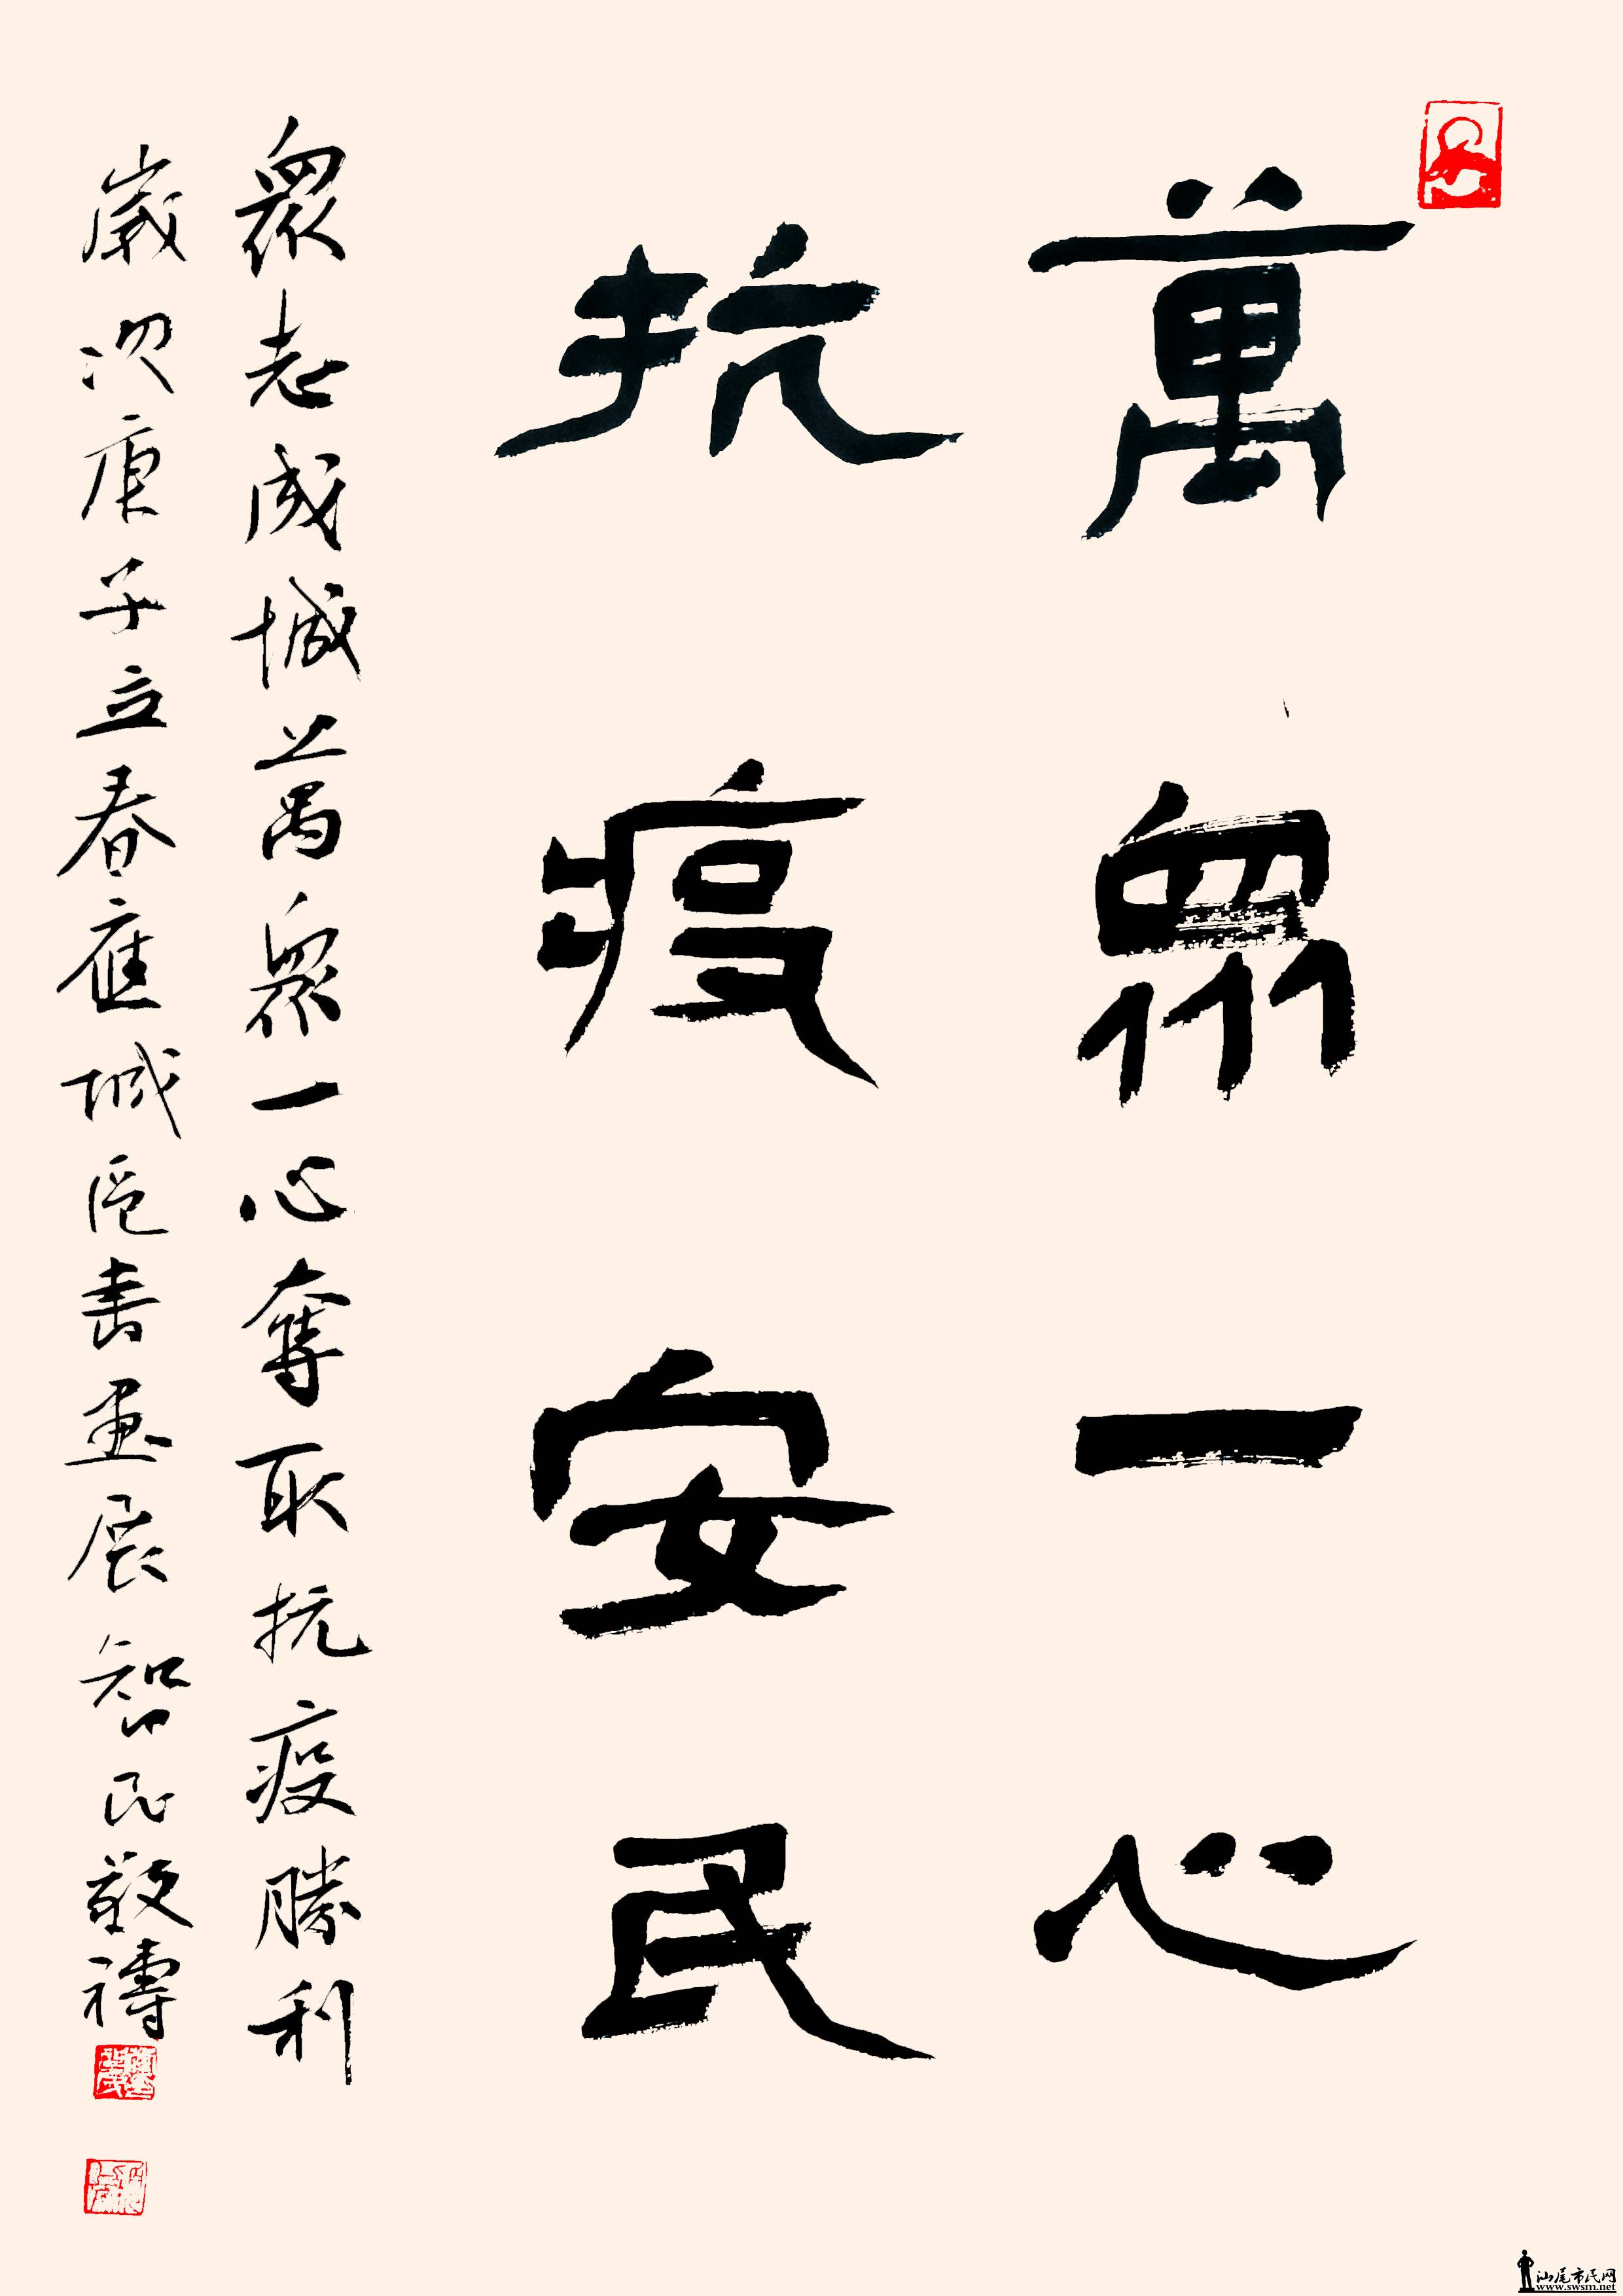 萬眾一心
抗疫安民
眾志成城萬眾一心奪取抗疫勝利
歲次庚子立春應城區書畫展智民敬禱
汕尾市民网
www.swsm.net